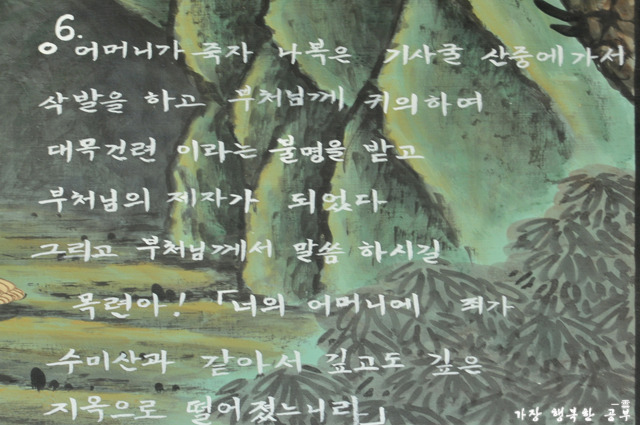 6.
어머니가 죽자 나복은 기사굴 산중에 가서
삭발을 하고 부처님께 귀의하여
대목건련 이라는 불명을 받고
부처님의 제자가 되었다
그리고 부처님께서 말씀 하시길
목련아! 「너의 어머니에 죄가
수미산과 같아서 깊고도 깊은
지옥으로 떨어졌느니라」
가장 행복한 공부